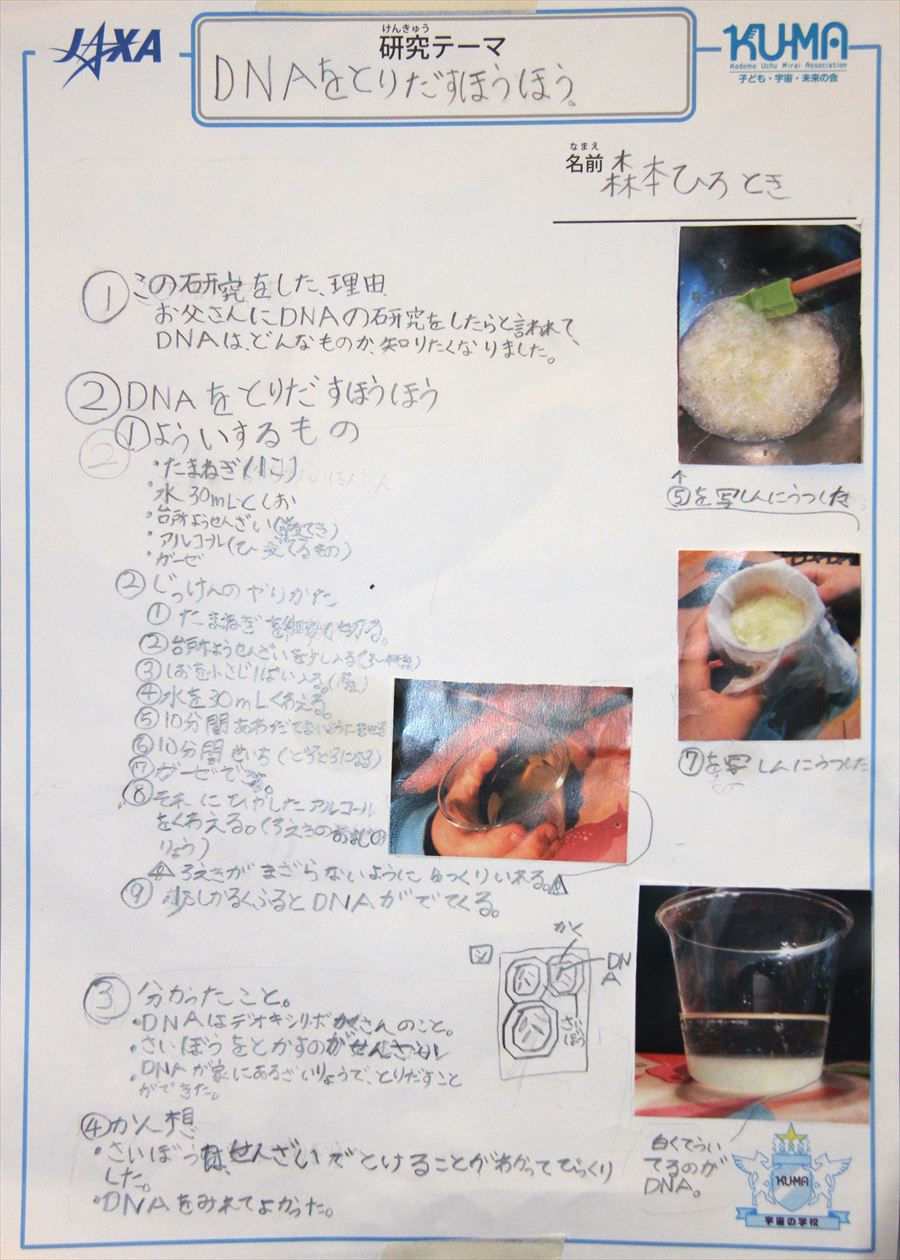 JAXA
けんきゅう
研究テーマ
DNAをとりだすほうほう。
KU-MA
Kodomo Uchu Mirai Association
子ども・宇宙・未来の会
なまえ
名前 森本ひろとき
① この研究をした、理由
お父さんにDNAの研究をしたらと言われて、
DNAは、どんなものか、知りたくなりました。
② DNAをとりだすほうほう
①よういするもの
・たまねぎ(1こ)
・水 30mLとしお
・台所ようせんざい(
・アルコール(
・ガーゼ
②じっけんのやりかた
①たまねぎを細かく切る。
②台所ようせんざいを少し入る
③しおを小さじ1ぱい入る。
④水を30mLくわえる。
⑤10分間あわだてないようにまぜる
⑥10分間せいち(とろとろになる)
⑦ガーゼで
⑧それにひやしたアルコール
をくわえる。(ろえきのおなじの
りょう)
ろえきがまざらないようにゆっくりいれる。
⑨少しかるくふるとDNAがでてくる。
↑
⑤を写しんにうつした。
⑦を写しんにうつした
図
かく
DNA
さいぼう
③ 分かったこと。
・DNAはデオキシリボかくさんのこと。
・さいぼうをとかすのがせんざい
・DNAが家にあるざいりょうで、とりだすこと
ができた。
④かん想
・さいぼうはせんざいでとけることがわかってびっくり
した。
・DNAをみれてよかった。
白くてうい
てるのが
DNA。
KU-MA
宇宙の学校